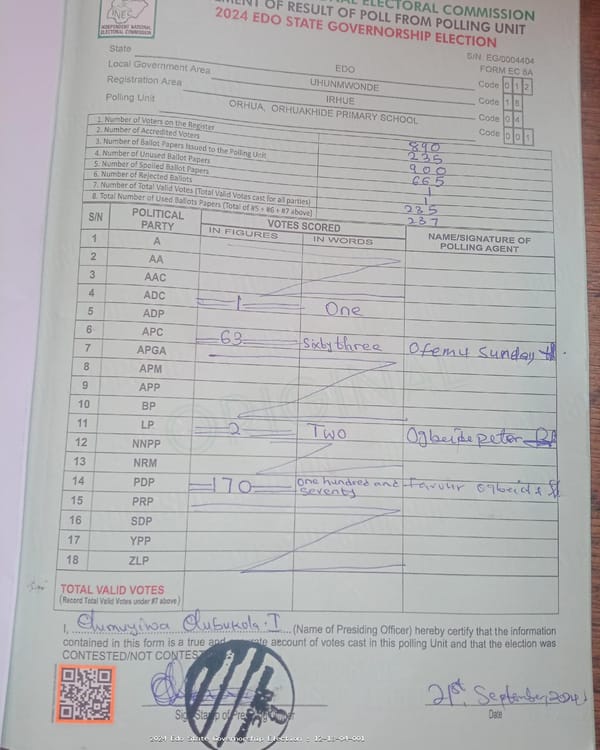 INEC
INDEPENDENT NATIONAL
ELECTORAL COMMISSION
ELECTORAL COMMISSION
OF RESULT OF POLL FROM POLLING UNIT
2024 EDO STATE GOVERNORSHIP ELECTION
S/N. EG/0004404
FORM EC 8A
State EDO
Local Government Area UHUNMWONDE Code 0 1 2
Registration Area IRHUE Code 1 8
Polling Unit ORHUA, ORHUAKHIDE PRIMARY SCHOOL Code 0 4
Code 0 0 1
1. Number of Voters on the Register 890
2. Number of Accredited Voters 235
3. Number of Ballot Papers Issued to the Polling Unit 900
4. Number of Unused Ballot Papers 665
5. Number of Spoiled Ballot Papers 1
6. Number of Rejected Ballots 1
7. Number of Total Valid Votes (Total Valid Votes cast for all parties) 235
8. Total Number of Used Ballots Papers (Total of #5 + #6 + #7 above) 237
S/N POLITICAL PARTY VOTES SCORED NAME/SIGNATURE OF POLLING AGENT
IN FIGURES IN WORDS
1 A
2 AA
3 AAC
4 ADC 1 One
5 ADP
6 APC 63 Sixty three Ofemu Sunday
7 APGA
8 APM
9 APP
10 BP
11 LP 2 Two Ogbeide peter
12 NNPP
13 NRM
14 PDP 170 one hundred and seventy Favour
15 PRP
16 SDP
17 YPP
18 ZLP
TOTAL VALID VOTES
(Record Total Valid Votes under #7 above)
I, Olubukola .I (Name of Presiding Officer) hereby certify that the information
contained in this form is a true and account of votes cast in this polling Unit and that the election was
CONTESTED/NOT
21st, September, 2024
Date
2024 Edo State Governorship Election : 12-18-04-001